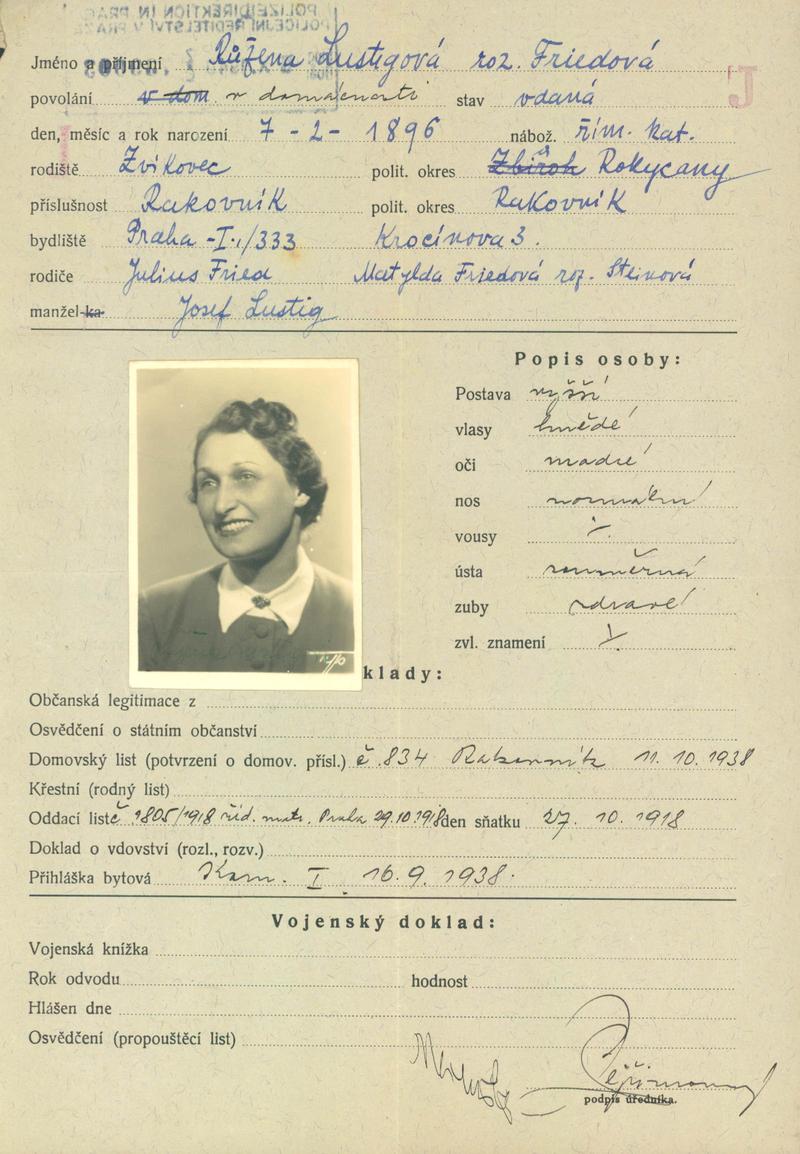 POLIZEIDIREKTION IN PRAG
POLICEJNÍ ŘEDITELSTVÍ V PRAZE
Jméno a příjmení Růžena Lustigová roz. Friedová
J
povolání v dom. v domácnosti stav vdaná
den, měsíc a rok narození 7 - 2 - 1896 nábož. řím. kat.
rodiště Zvíkovec polit. okres Zbiroh Rokycany
příslušnost Rakovník polit. okres Rakovník
bydliště Praha -I./333 Krocínova 3.
rodiče Julius Fried Matylda Friedová roz. Steinová
manžel-ka Josef Lustig
Popis osoby:
Postava vyšší
vlasy hnědé
oči modré
nos normální
vousy
ústa souměrná
zuby zdravé
zvl. znamení
klady:
Občanská legitimace z
Osvědčení o státním občanství
Domovský list (potvrzení o domov. přísl.) č. 834 Rakovník 11. 10. 1938
Křestní (rodný list)
Oddací list č. 1805/1918 žid. matr. Praha 29.10.1918 den sňatku 27. 10. 1918
Doklad o vdovství (rozl., rozv.)
Přihláška bytová Kom. I 16. 9. 1938.
Vojenský doklad:
Vojenská knížka
Rok odvodu hodnost
Hlášen dne
Osvědčení (propouštěcí list)
podpis úředníka.